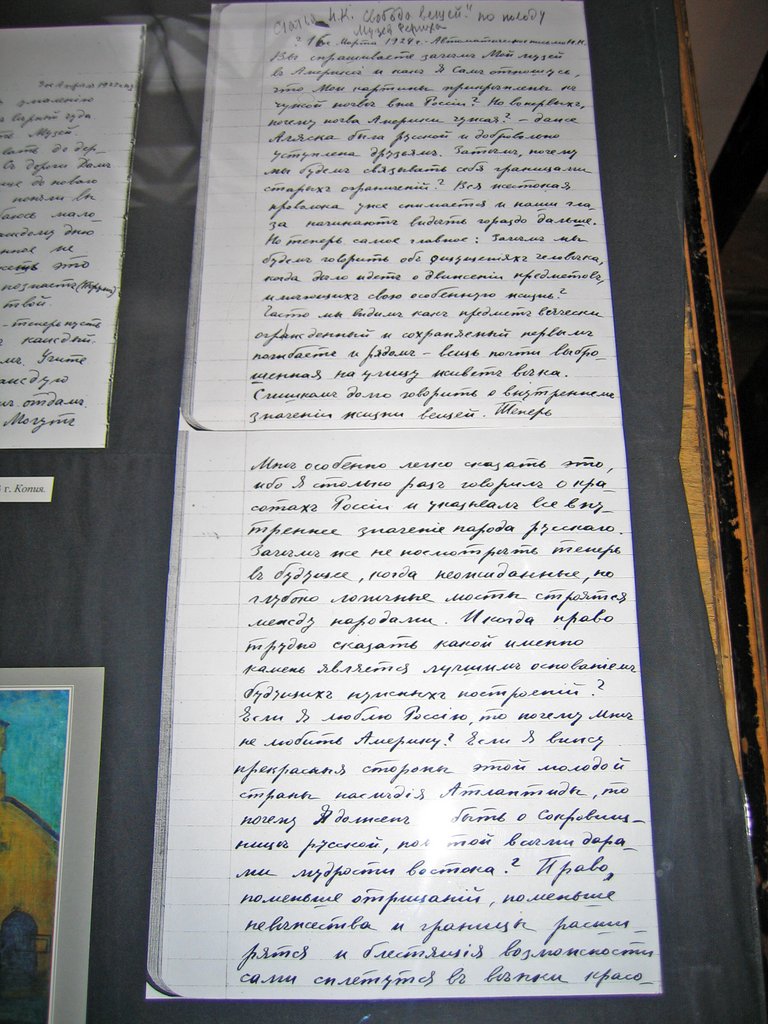 Статья Н.К. "Свобода вещей" по поводу
Музея Рериха
? 16 Марта 1924 г. Автоматическое письмо Н.К.
Вы спрашиваете зачѣмъ Мой музей
въ Америкѣ и какъ Я Самъ отношусь,
что Мои картины прикрѣплены къ
чужой почвѣ внѣ Россіи? Но вопервыхъ,
почему почва Америки чужая? – даже
Аляска была русской и добровольно
уступлена друзьямъ. Затѣмъ, почему
мы будемъ связывать себя границами
старыхъ ограниченій? Вся жестокая
проволока уже снимается и наши гла-
за начинаютъ видѣть гораздо дальше.
Но теперь самое главное: Зачѣмъ мы
будемъ говорить объ ощущеніяхъ человѣка,
когда дѣло идетъ о движеніи предметовъ,
имѣющихъ свою особенную жизнь?
Часто мы видимъ какъ предметъ всячески
огражденный и сохраняемый первымъ
погибаетъ и рядомъ – вещь почти выбро-
шенная на улицу живетъ вѣка.
Слишкомъ долго говорить о внутреннемъ
значеніи жизни вещей. Теперь
Мнѣ особенно легко сказать это,
ибо Я столько разъ говорилъ о кра-
сотахъ Россіи и указывалъ все вну-
треннее значеніе народа русскаго.
Зачѣмъ же не посмотрѣть теперь
въ будущее, когда неожиданные, но
глубоко логичные мосты строятся
между народами. И когда право
трудно сказать какой именно
камень является лучшимъ основаніемъ
будущихъ нужныхъ построеній?
Если Я люблю Россію, то почему Мнѣ
не любить Америку? Если Я вижу
прекрасныя стороны этой молодой
страны наслѣдія Атлантиды, то
почему Я долженъ быть о Сокровищ-
ницѣ русской, той всѣми дара-
ми мудрости востока? Право,
поменьше отрицаній, поменьше
невѣжества и границы расши-
рятся и блестящія возможности
сами сплетутся въ вѣнки красо-
Музей
до дер-
Съ дороги Вамъ
до новаго
поняли вы
мало
каждому дню
не
это
познаетъ
твой.
– теперь пусть
каждый
Учите
каждую
отдамъ.
Могутъ
г. Копия.